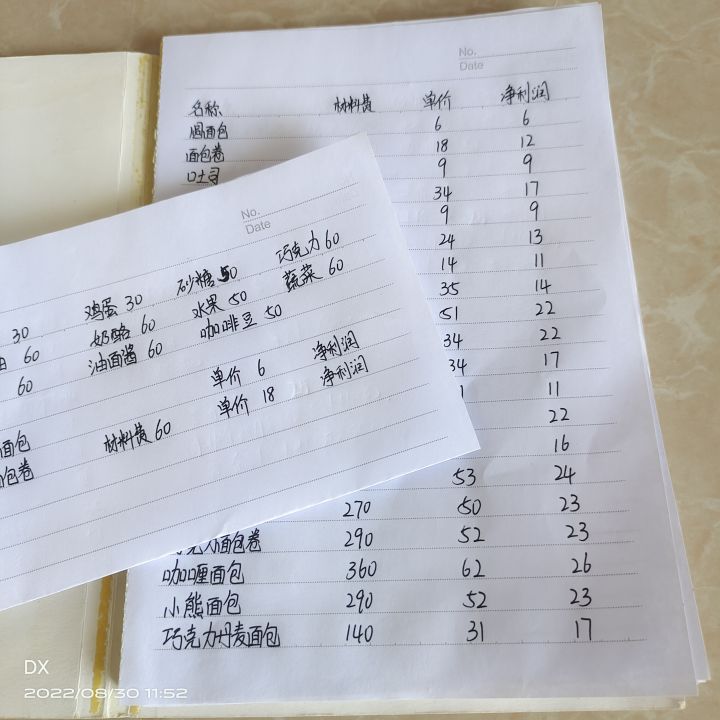 No.
Date
名称 材料费 单价 净利润
圆面包 6 6
面包卷 18 12
吐司 9 9
34 17
9 9
24 13
14 11
35 14
51 22
34 22
34 17
11
22
16
53 24
270 50 23
巧克力面包卷 290 52 23
咖喱面包 360 62 26
小熊面包 290 52 23
巧克力丹麦面包 140 31 17
No.
Date
30 鸡蛋 30 砂糖 50 巧克力 60
油 60 奶酪 60 水果 50 蔬菜 60
60 油面酱 60 咖啡豆 50
单价 6 净利润
单价 18 净利润
面包 材料费 60
面包卷
DX
2022/08/30 11:52